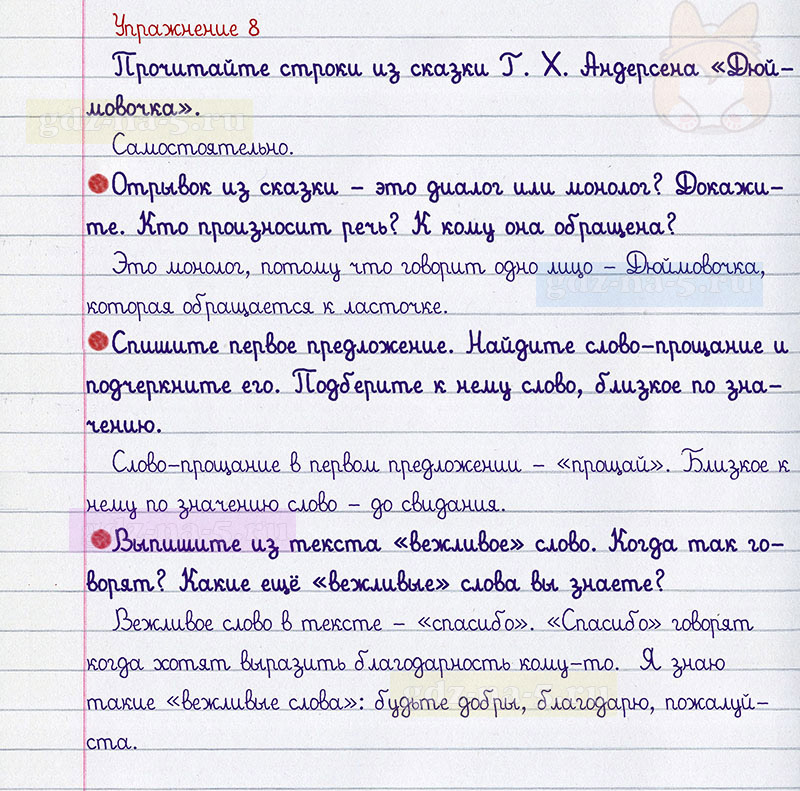 Упражнение 8
Прочитайте строки из сказки Г. Х. Андерсена «Дюй-
мовочка».
gdz-na-5.ru
Самостоятельно.
Отрывок из сказки – это диалог или монолог? Докажи-
те. Кто произносит речь? К кому она обращена?
Это монолог, потому что говорит одно лицо – Дюймовочка,
gdz-na-5.ru
которая обращается к ласточке.
Спишите первое предложение. Найдите слово-прощание и
подчеркните его. Подберите к нему слово, близкое по зна-
чению.
Слово-прощание в первом предложении – «прощай». Близкое к
нему по значению слово – до свидания.
gdz-na-5.ru
Выпишите из текста «вежливое» слово. Когда так го-
ворят? Какие ещё «вежливые» слова вы знаете?
Вежливое слово в тексте – «спасибо». «Спасибо» говорят
когда хотят выразить благодарность кому-то. Я знаю
gdz-na-5.ru
такие «вежливые слова»: будьте добры, благодарю, пожалуй-
ста.